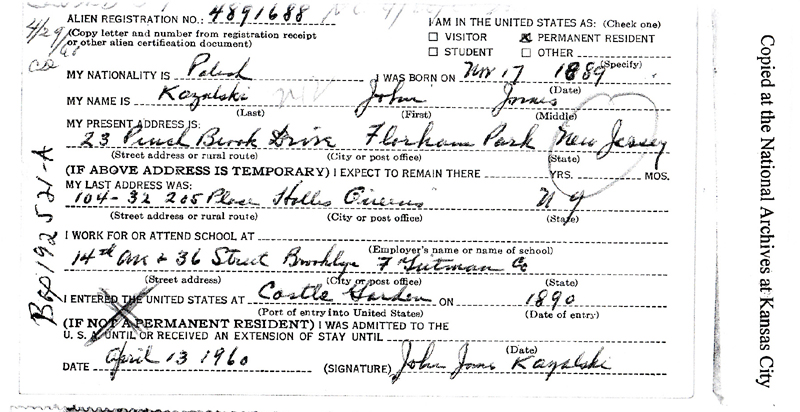 ALIEN REGISTRATION NO.: 4891688
(Copy letter and number from registration receipt
or other alien certification document)
4/29/60
I AM IN THE UNITED STATES AS: (Check one)
☐ VISITOR ☒ PERMANENT RESIDENT
☐ STUDENT ☐ OTHER
(Specify)
MY NATIONALITY IS Polish I WAS BORN ON Nov 17 1889
(Date)
MY NAME IS Kozalski John James
(Last) (First) (Middle)
MY PRESENT ADDRESS IS:
23 Brook Drive Florham Park New Jersey
(Street address or rural route) (City or post office) (State)
(IF ABOVE ADDRESS IS TEMPORARY) I EXPECT TO REMAIN THERE YRS. MOS.
MY LAST ADDRESS WAS:
104-32 205 Place Hollis Queens N Y
(Street address or rural route) (City or post office) (State)
I WORK FOR OR ATTEND SCHOOL AT
(Employer's name or name of school)
14th Ave & 36 Street Brooklyn F Gutman Co
(Street address) (City or post office) (State)
I ENTERED THE UNITED STATES AT Castle Garden ON 1890
(Port of entry into United States) (Date of entry)
(IF NOT A PERMANENT RESIDENT) I WAS ADMITTED TO THE
U. S. UNTIL OR RECEIVED AN EXTENSION OF STAY UNTIL
(Date)
DATE April 13 1960 (SIGNATURE) John James Kozalski
Copied at the National Archives at Kansas City